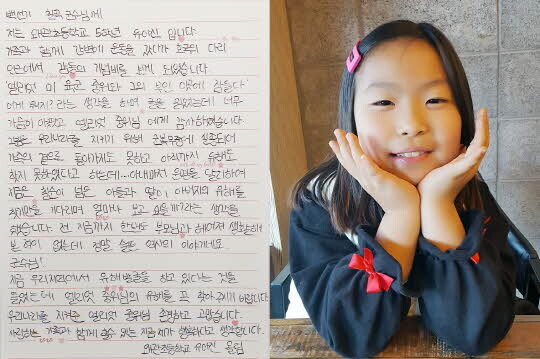 백선기 칠곡 군수님께!
저는 왜관초등학교 5학년 유아진 입니다.
가족과 함께 강변에 운동을 갔다가 호국의 다리
안은에서 감동의 기념비를 보게 되었습니다
"엘리엇 미 육군 중위와 그의 부인 이곳에 잠들다"
이게 뭐지? 라는 생각을 하며 글을 읽었는데 너무
가슴이 아팠고 엘리엇 중위님 에게 감사하였습니다
그분은 우리나라를 지키기 위해 전투중에 실종되어
가족의 곁으로 돌아가지도 못하고 아직까지 유해도
찾지 못하였다고 하는데...
지금은 칠순이 넘은 아들과 딸이 아버지의 유해를
찾기만을 기다리며 얼마나 보고 싶을까?라는 생각을
했습니다. 전 지금까지 한번도 부모님과 헤어져 생활해
본 적이 없는데 정말 슬픈 역사의 이야기네요.
군수님!
지금 우리지역에서 유해발굴을 하고 있다는 것을
들었는데 엘리엇 중위님의 유해를 꼭 찾아 주시기 바랍니다.
우리나라를 지켜준 엘리엇 중위님 존경하고 고맙습니다.
사랑하는 가족과 함께 할수 있는 지금 제가 행복하다고 생각합니다.
왜관초등학교 유아진 올림